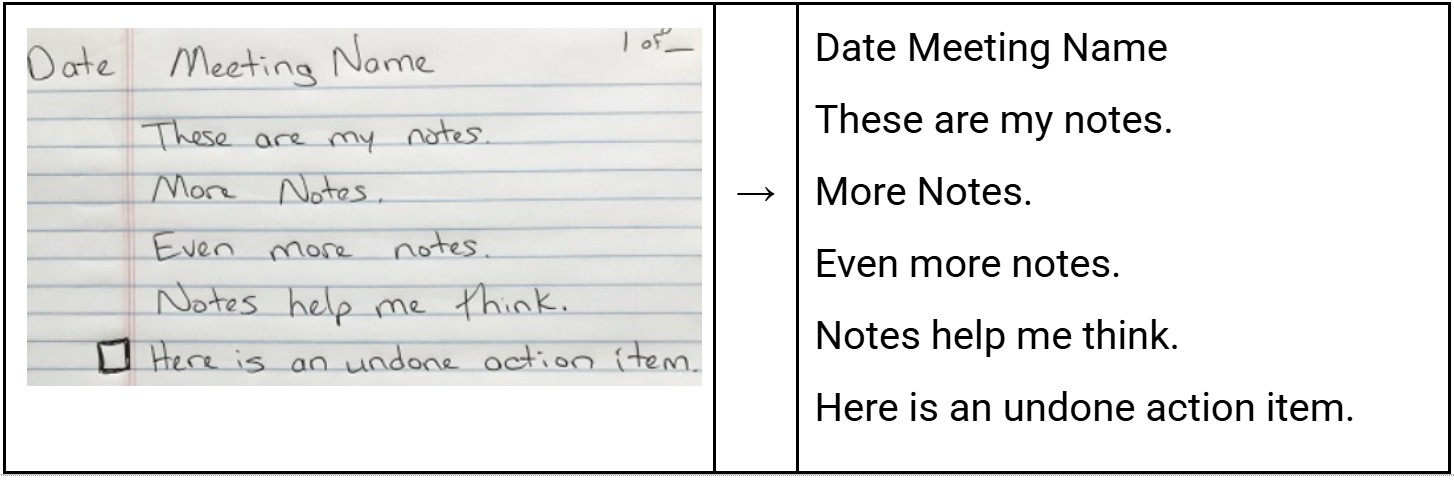 Date Meeting Name 1 of _
These are my notes.
More Notes.
Even more notes.
Notes help me think.
Here is an undone action item.
→
Date Meeting Name
These are my notes.
More Notes.
Even more notes.
Notes help me think.
Here is an undone action item.